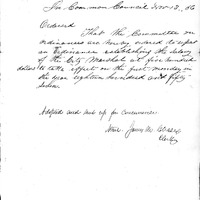 In Common Council Nov 13. 56
Ordered
That the Committee on
ordinances are hereby ordered to report
an Ordinance establishing the salary
of the City Marshal at five hundred
dollars to take effect on the first monday in
the year eighteen hundred and fifty
seven.
Adopted and sent up for concurrence
Attest. James M.
Clerk